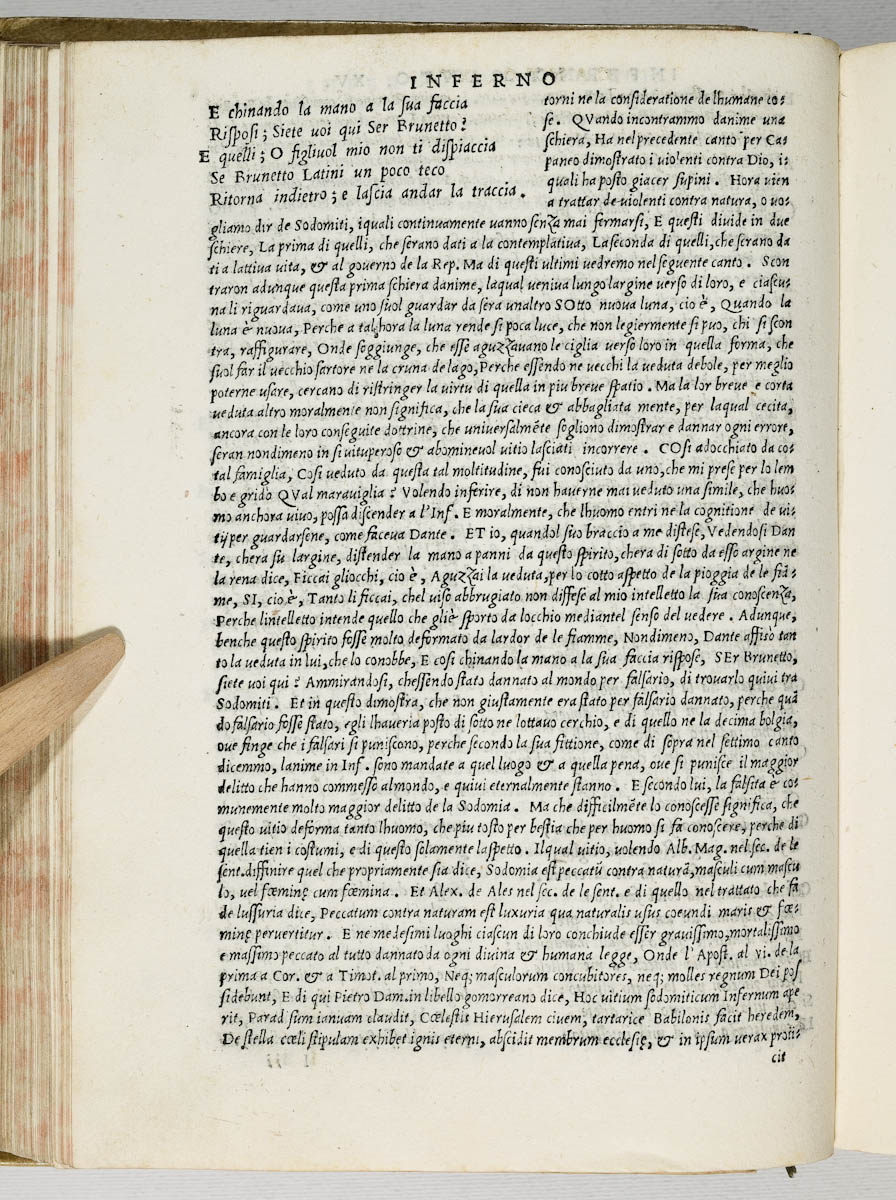 INFERNO
E chinando la mano a la sua faccia
Risposi; Siete uoi qui Ser Brunetto?
E quelli; O figliuol mio non ti dispiaccia
Se Brunetto Latini un poco teco
Ritorna indietro; e lascia andar la traccia.
torni ne la consideratione de lhumane co-
se. QVando incontrammo danime una
schiera, Ha nel precedente canto per Ca-
paneo dimostrato i uiolenti contra Dio, i-
quali ha posto giacer supini. Hora uien
a trattar de uiolenti contra natura, o uo-
gliamo dir de Sodomiti, iquali continuamente uanno senza mai fermarsi, E questi diuide in due
schiere, La prima di quelli, che serano dati a la contemplatiua, La seconda di quelli, che serano da
ti a lattiua uita, & al gouerno de la Rep. Ma di questi ultimi uedremo nel seguente canto. Scon
traron adunque questa prima schiera danime, laqual ueniua lungo largine uerso di loro, e ciascu-
na li riguardaua, come uno suol guardar da sera unaltro SOtto nuoua luna, cio è, Quando la
luna è nuoua, Perche a tal hora la luna rende si poca luce, che non legiermente si puo, chi si scon
tra, raffigurare, Onde soggiunge, che esse aguzzauano le ciglia uerso loro in quella forma, che
suol far il uecchio sartore ne la cruna de lago, Perche essendo ne uecchi la ueduta debole, per meglio
poterne usare, cercano di ristringer la uirtu di quella in piu breue spatio. Ma la lor breue e corta
ueduta altro moralmente non significa, che la sua cieca & abbagliata mente, per laqual cecita,
ancora con le loro conseguite dottrine, che uniuersalmẽte sogliono dimostrar e dannar ogni errore,
seran nondimeno in si uituperoso & abomineuol uitio lasciati incorrere. COsi adocchiato da co-
tal famiglia, Cosi ueduto da questa tal moltitudine, fui conosciuto da uno, che mi prese per lo lem
bo e grido QVal marauiglia? Volendo inferire, di non hauerne mai ueduto una simile, che huo-
mo anchora uiuo, possa discender a l'Inf. E moralmente, che lhuomo entri ne la cognitione de ui-
tij per guardarsene, come faceua Dante. ET io, quandol suo braccio a me distese, Vedendosi Dan
te, chera su largine, distender la mano a panni da questo spirito, chera di sotto da esso argine ne
la rena dice, Ficcai gliocchi, cio è, Aguzzai la ueduta, per lo cotto aspetto de la pioggia de le fiã-
me, SI, cio è, Tanto li ficcai, chel uiso abbrugiato non diffese al mio intelletto la sua conoscenza,
Perche lintelletto intende quello che gliè sporto da locchio mediantel senso del uedere. Adunque,
benche questo spirito fosse molto deformato da lardor de le fiamme, Nondimeno, Dante affiso tan
to la ueduta in lui, che lo conobbe, E cosi chinando la mano a la sua faccia rispose, SEr Brunetto,
siete uoi qui? Ammirandosi, chessendo stato dannato al mondo per falsario, di trouarlo quiui tra
Sodomiti. Et in questo dimostra, che non giustamente era stato per falsario dannato, perche quã
do falsario fosse stato, egli lhaueria posto di sotto ne lottauo cerchio, e di quello ne la decima bolgia,
oue finge che i falsari si puniscono, perche secondo la sua fittione, come di sopra nel settimo canto
dicemmo, lanime in Inf. sono mandate a quel luogo & a quella pena, oue si punisce il maggior
delitto che hanno commesso al mondo, e quiui eternalmente stanno. E secondo lui, la falsita è co-
munemente molto maggior delitto de la Sodomia. Ma che difficilmẽte lo conoscesse significa, che
questo uitio deforma tanto lhuomo, che piu tosto per bestia che per huomo si fa conoscere, perche di
quella tien i costumi, e di questo solamente laspetto. Ilqual uitio, uolendo Alb. Mag. nel sec. de le
sent. diffinire quel che propriamente sia dice, Sodomia est peccatũ contra naturã, masculi cum mascu
lo, uel fœminę cum fœmina. Et Alex. de Ales nel sec. de le sent. e di quello nel trattato che fa
de lussuria dice, Peccatum contra naturam est luxuria qua naturalis usus coeundi maris & fœ-
minę peruertitur. E ne medesimi luoghi ciascun di loro conchiude esser grauissimo, mortalissimo
e massimo peccato al tutto dannato da ogni diuina & humana legge, Onde l'Apost. al vi. de la
prima a Cor. & a Timot. al primo, Neq; masculorum concubitores, neq; molles regnum Dei pos
sidebunt, E di qui Pietro Dam. in libello gomorreano dice, Hoc uitium sodomiticum Infernum ape
rit, Paradisum ianuam claudit, Cœlestis Hierusalem ciuem, tartarice Babilonis facit heredem,
De stella cœli stipulam exhibet ignis eterni, abscidit membrum ecclesię, & in ipsum uerax profi-
cit